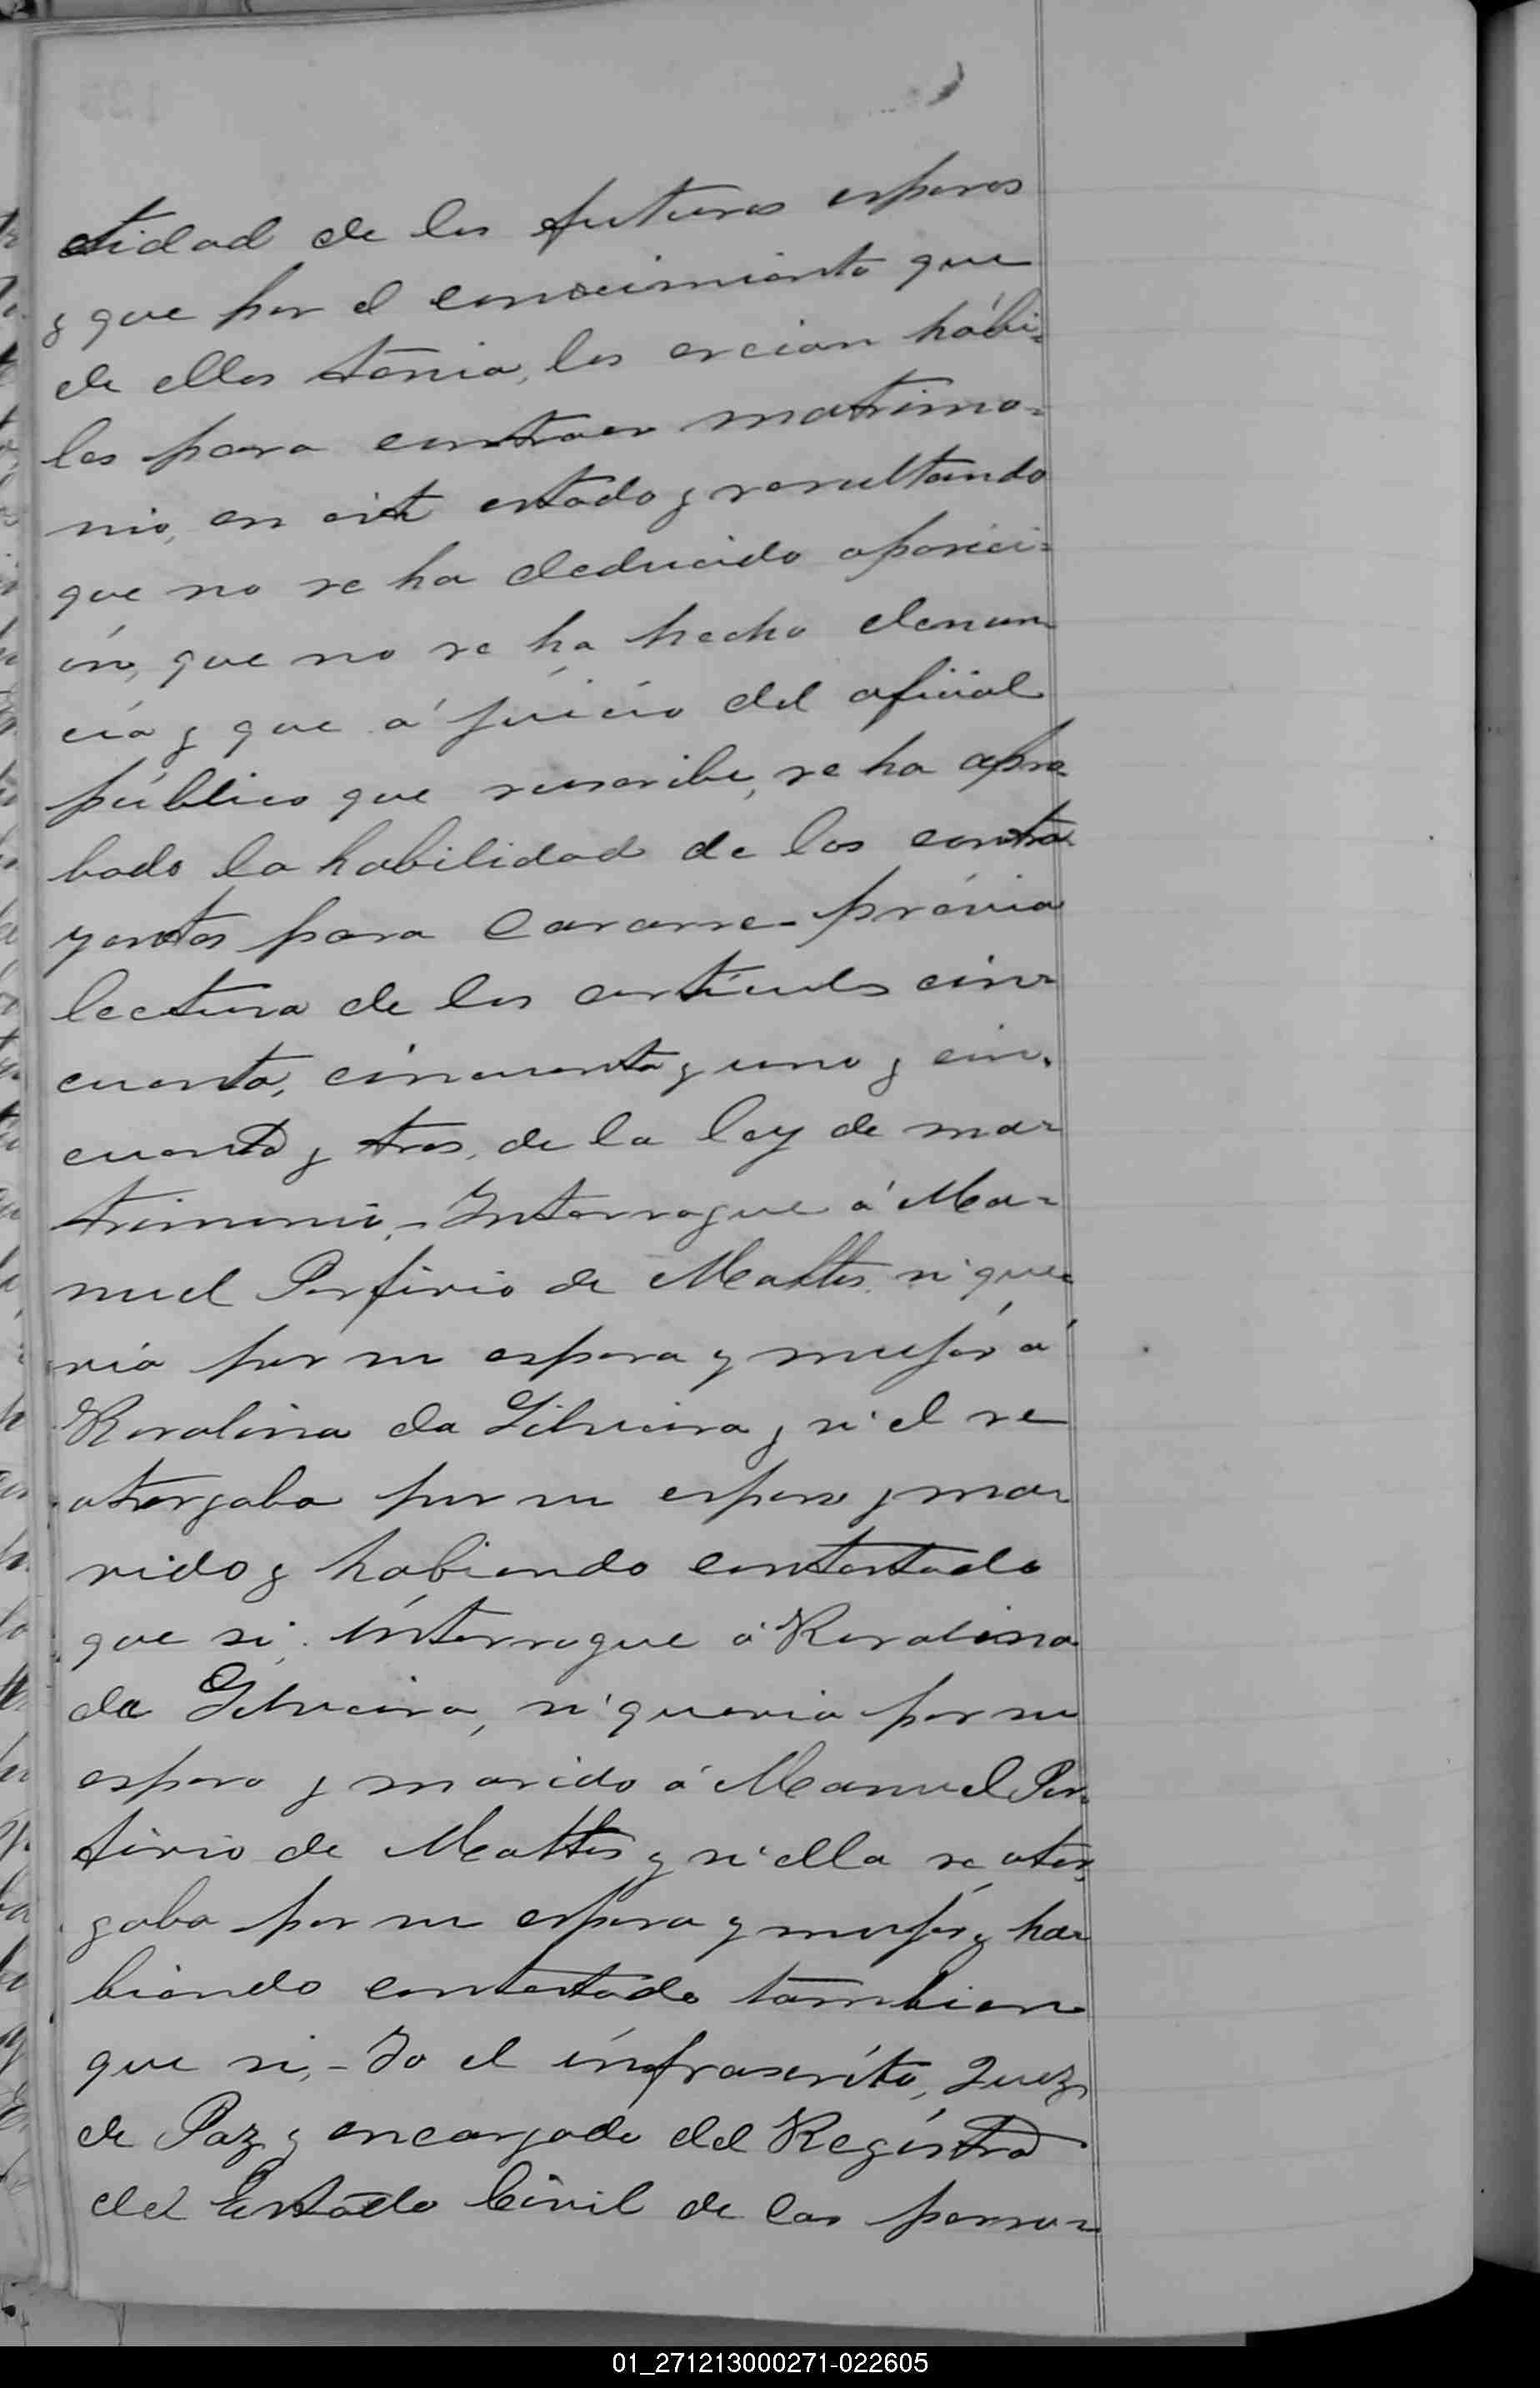 tidad de los futuros esposos
y que por el conocimiento que
de ellos tenia, los creian hábi=
les para contraer matrimo=
nio, en este estado y resultando
que no se ha deducido oposici=
ón, que no se ha hecho denun
cia y que á juicio del oficial
público que suscribe, se ha apro
bado la habilidad de los contra
yentes para casarse - prévia
lectura de los artículos cin=
cuenta, cincuenta y uno y cin.
cuenta y tres, de la ley de ma=
trimonio, - Interrogue á Ma=
nuel Porfirio de Mattos si que=
ria por su esposa y mujer á
Rosalina da Silveira y si el se
otorgaba por su esposo y ma=
rido y habiendo contestado
que si, interrogue á Rosalina
da Silveira, si queria por su
esposo y marido á Manuel Por=
firio de Mattos y si ella se otor
gaba por su esposa y mujer y ha=
biendo contestado tambien
que si, - Yo el infrascrito, Juez
de Paz y encargado del Registro
del Estado Civil de las perso=
01_271213000271-022605